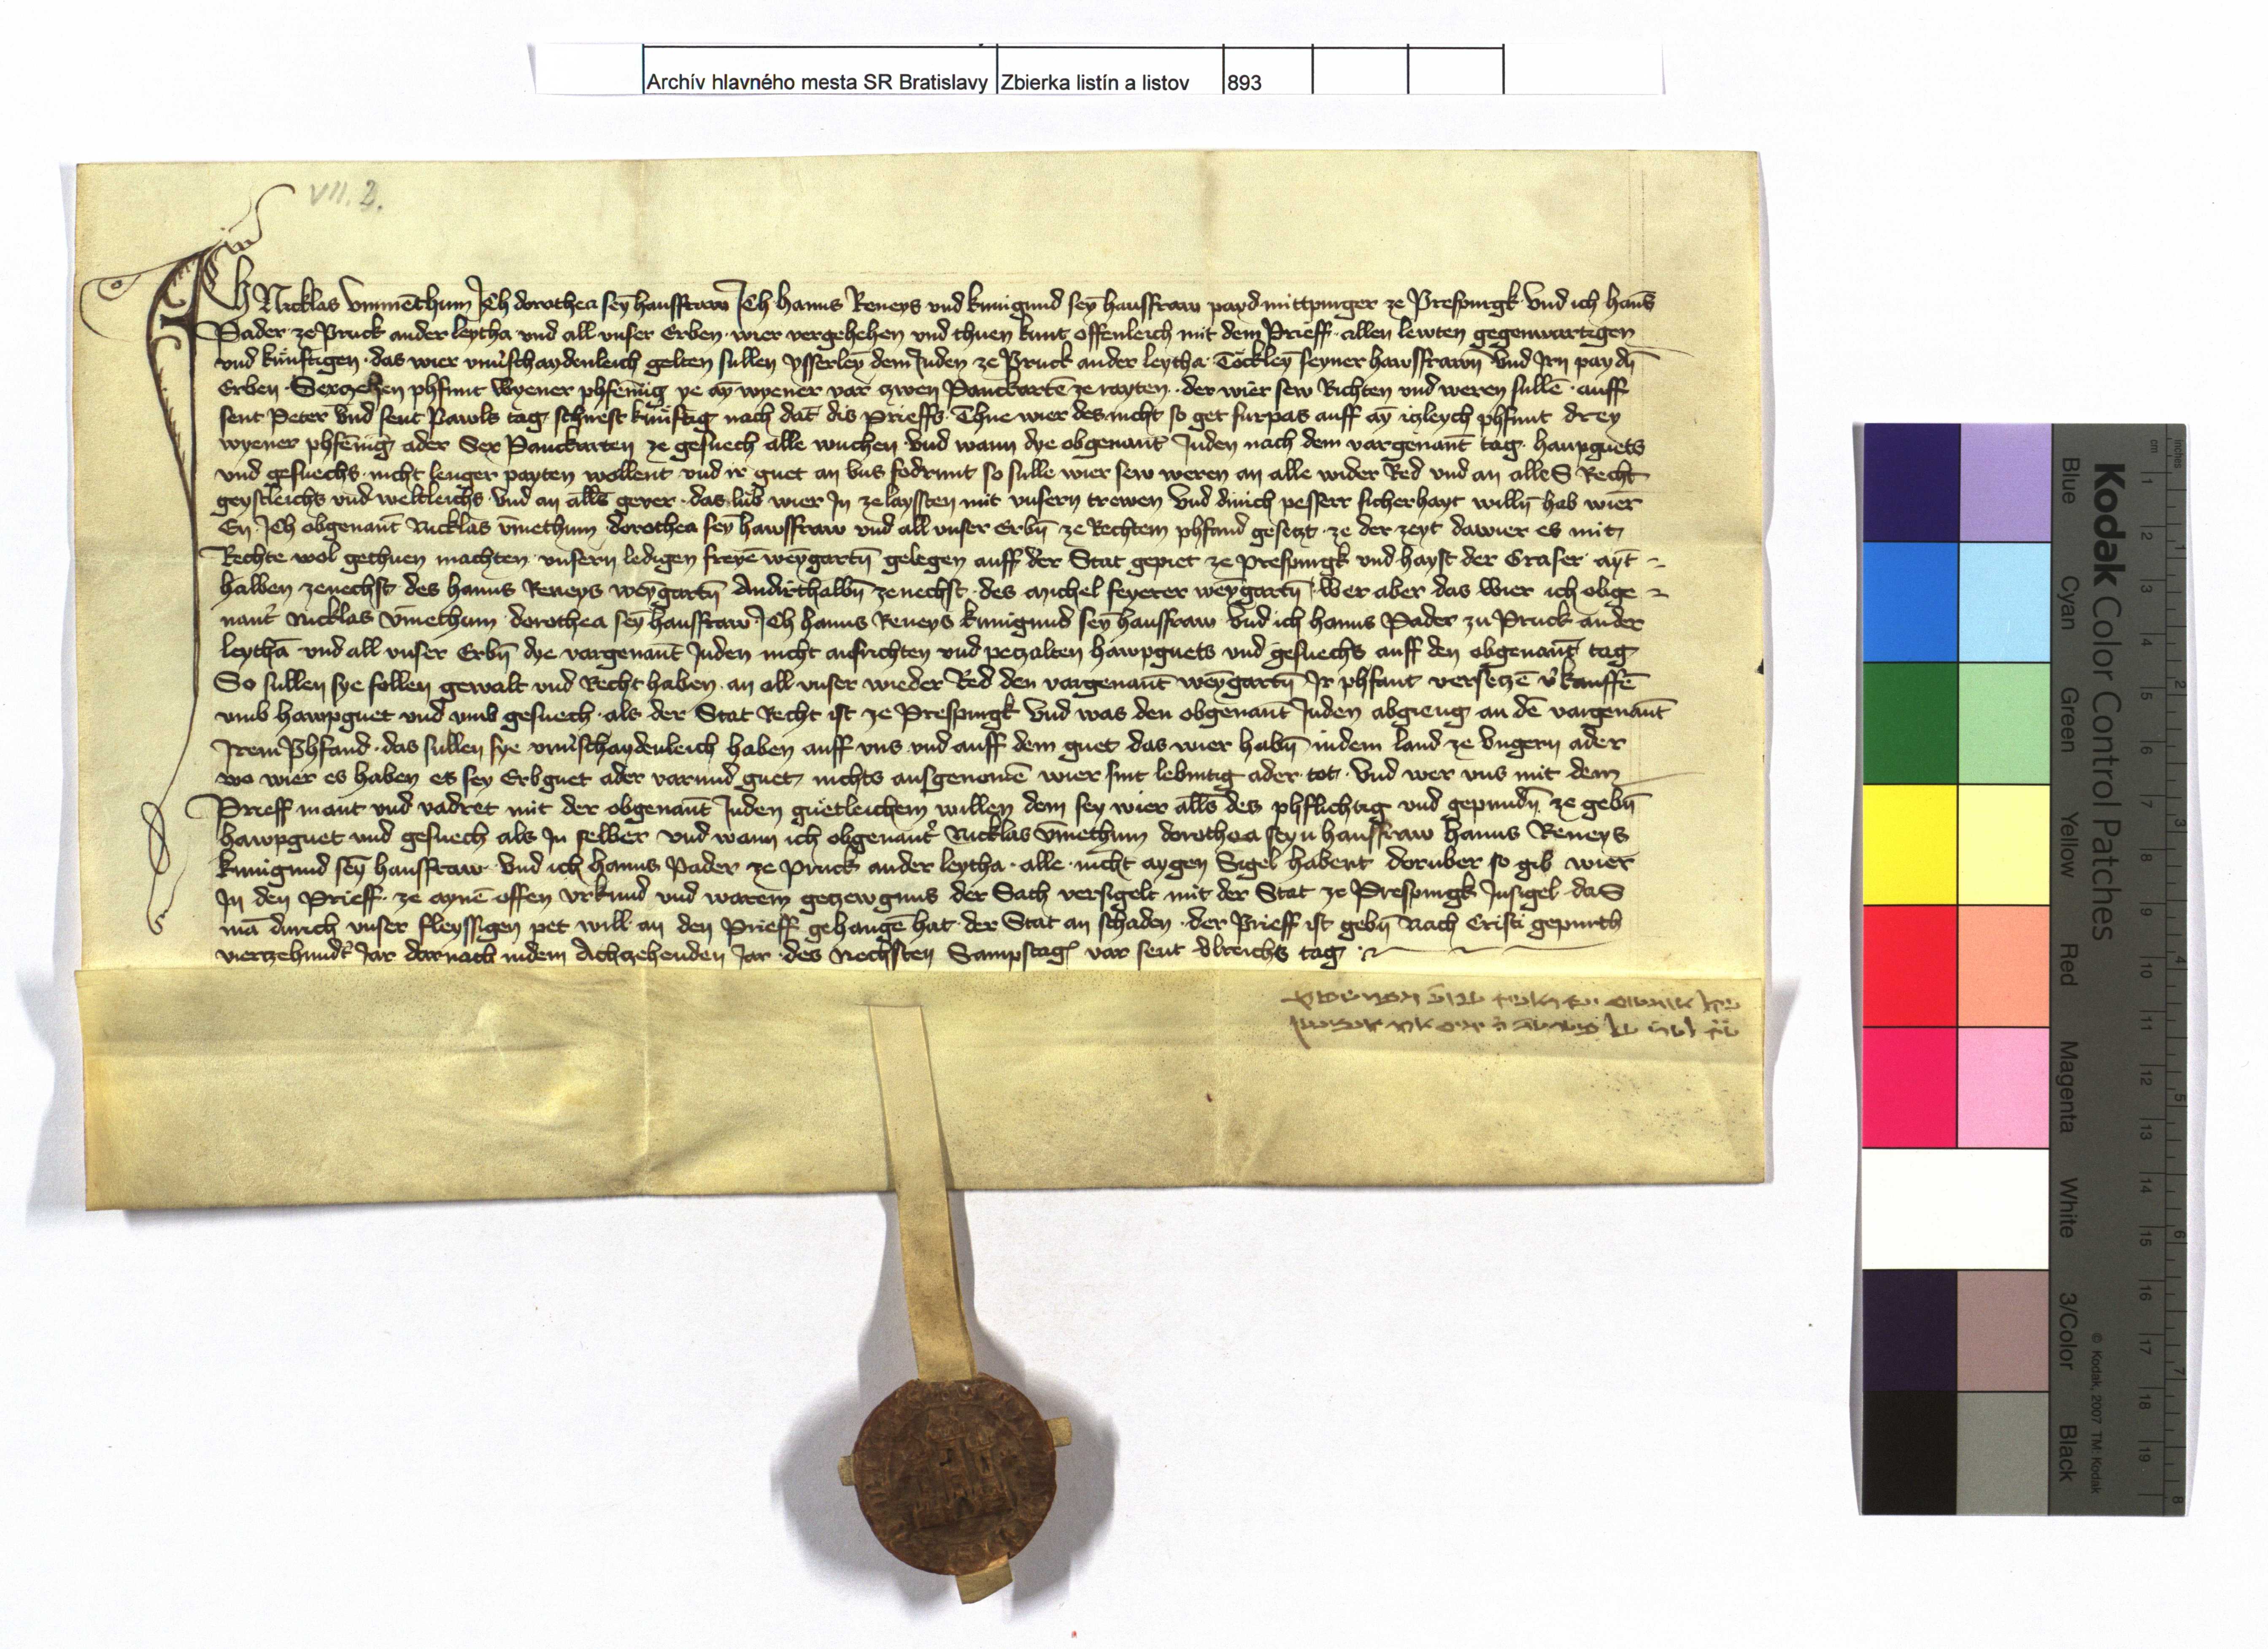 Archív hlavného mesta SR Bratislavy Zbierka listín a listov 893
VII. 2.
Ich Nicklas vmmēthum Ich dorothea sey̅ hausffraw Ich hanns Reneys vnd kunigund sey̅ hausffraw payd mittpurger ze Prespurgk vnd ich han̅s
Pader ze Pruck ander leytha vnd all vnser Erben wier vergehehen vnd thuen kunt offenleich mit dem Prieff allen lewten gegenwartigen
vnd künftigen das wier vnu̓schaydenleich gelten sullen ysserley̅ dem Juden ze Pruck ander leytha Töckley̅ seyner hawsffrawn̅ vnd Irn paydn̅
Erben Sexzehen phfunt wyener phfēnig ye ay̅ wyener var zwen Panckartē ze rayten der wier sew Richten vnd weren sullē auff
sent Peter vnd sent Pawls tag schirest künftig nach dat̄ dis prieffs Thue wier des nicht so get furpas auff ay̅ izleych phfunt drey
wyener phfēnig ader Sex Panckarten ze gesuech alle wuchen vnd wann dye obgenant̄ Juden nach dem vargenant̄ tag haupguets
vnd gesuechs nicht lenger payten wollent vnd ir guet an vns fodrunt so sulle wier sew weren an alle wider Red vnd an alleS Recht
geystleichs vnd weltleichs vnd an alls̄ gever das lub wier In ze laysten mit vnsern trewen vnd durich pesserr sicherhayt willn̅ hab wier
En Ich obgenant̄ Nicklas vmethum dorothea sey̅ hawsffraw vnd all vnser Erbn̅ ze Rechtem phfand gesetzt ze der zeyt dawier es mit
Rechte wol gethuen machten vnsern ledigen freyē weyngartn̅ gelegen auff der Stat gepiet ze prespurgk vnd hayst der Graser ayt
halben zenechst des hanns Reneys weyngartn̅ Andirthalbn̅ zenechst des michel feyerer weyngartn̅ wer aber das wier ich obge
nant̓ Nicklas vmēthum dorothea sey̅ hausffraw Ich hanns Reneys kunigund sey̅ hausffraw vnd ich hanns Pader zu Pruck ander
leytha vnd all vnser Erbn̅ dye vargenant̄ Juden nicht ausrichten vnd petzalten hawpguets vnd gesuechs auff den obgenant̄ tag
So sullen sye follen gewalt vnd Recht haben an all vnser wieder Red den vargenant̄ weyngartn̅ Ir phfant versetzē v̓kauffē
vmb hawpguet vnd vmb gesuech als der Stat Recht ist ze Prespurgk vnd was den obgenant̄ Juden abgieng an dē vargenant̄
Irem Phfand das sullen sye vnu̓schaydenleich haben auff vns vnd auff dem guet das wier habn̅ indem land ze vngern ader
wo wier es haben es sey Erbguet ader varund guet nichts ausgenomē wier sint lebintig ader tot vnd wer vns mit dem
Prieff mant vnd vadret mit der obgenant̄ Juden guetleichem willen dem sey wier alls̄ des phflichtig vnd gepundn̅ ze gebn̅
hawpguet vnd gesuech als In selber vnd wann ich obgenant̓ Nicklas vmēthum dorothea seyn hausffraw hanns Reneys
kunigund sey̅ hausffraw vnd ich hanns Pader ze pruck ander leytha alle nicht aygen Sigel habent doruber so gib wier
In den Prieff ze aynē offen vrkund vnd warem gezewgnus der Sach versigelt mit der Stat ze Prespurgk Insigel daS
mā durich vnser fleyssigen pet will an den Prieff gehangē hat der Stat an schaden der Prieff ist gebn̅ Nach Cristi gepurth
vierzehundt̓ Jar darnach indem Achzehenden Jar des Nechsten Sampstag var sent vlreichs tag
Kodak Color Control Patches
Blue Cyan Green Yellow Red Magenta White 3/Color Black
© Kodak, 2007 TM: Kodak
inches 1 2 3 4 5 6 7 8
cm 1 2 3 4 5 6 7 8 9 10 11 12 13 14 15 16 17 18 19